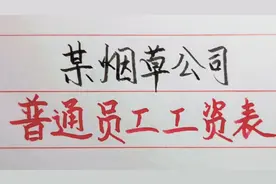 某烟草公司
普通员工工资表